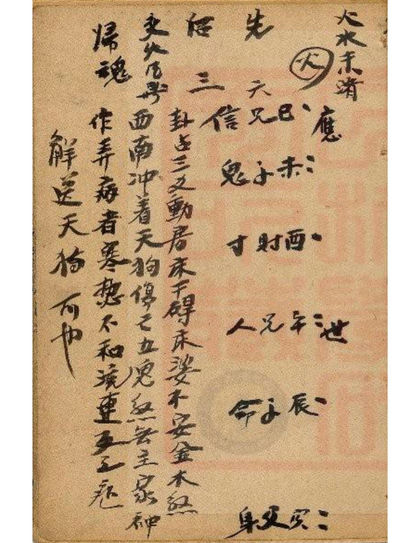 火水未濟
火
應 世
巳 未 酉 午 辰 寅
兄 子 財 兄 子 父
先 天
信 鬼 寸 人 命 身
三
卦占三爻動居床下碍床婆不安金木煞
西南冲着天狗停亡五鬼煞無主家神
歸魂
作弄病者寒熱不和流連
解送天狗可也